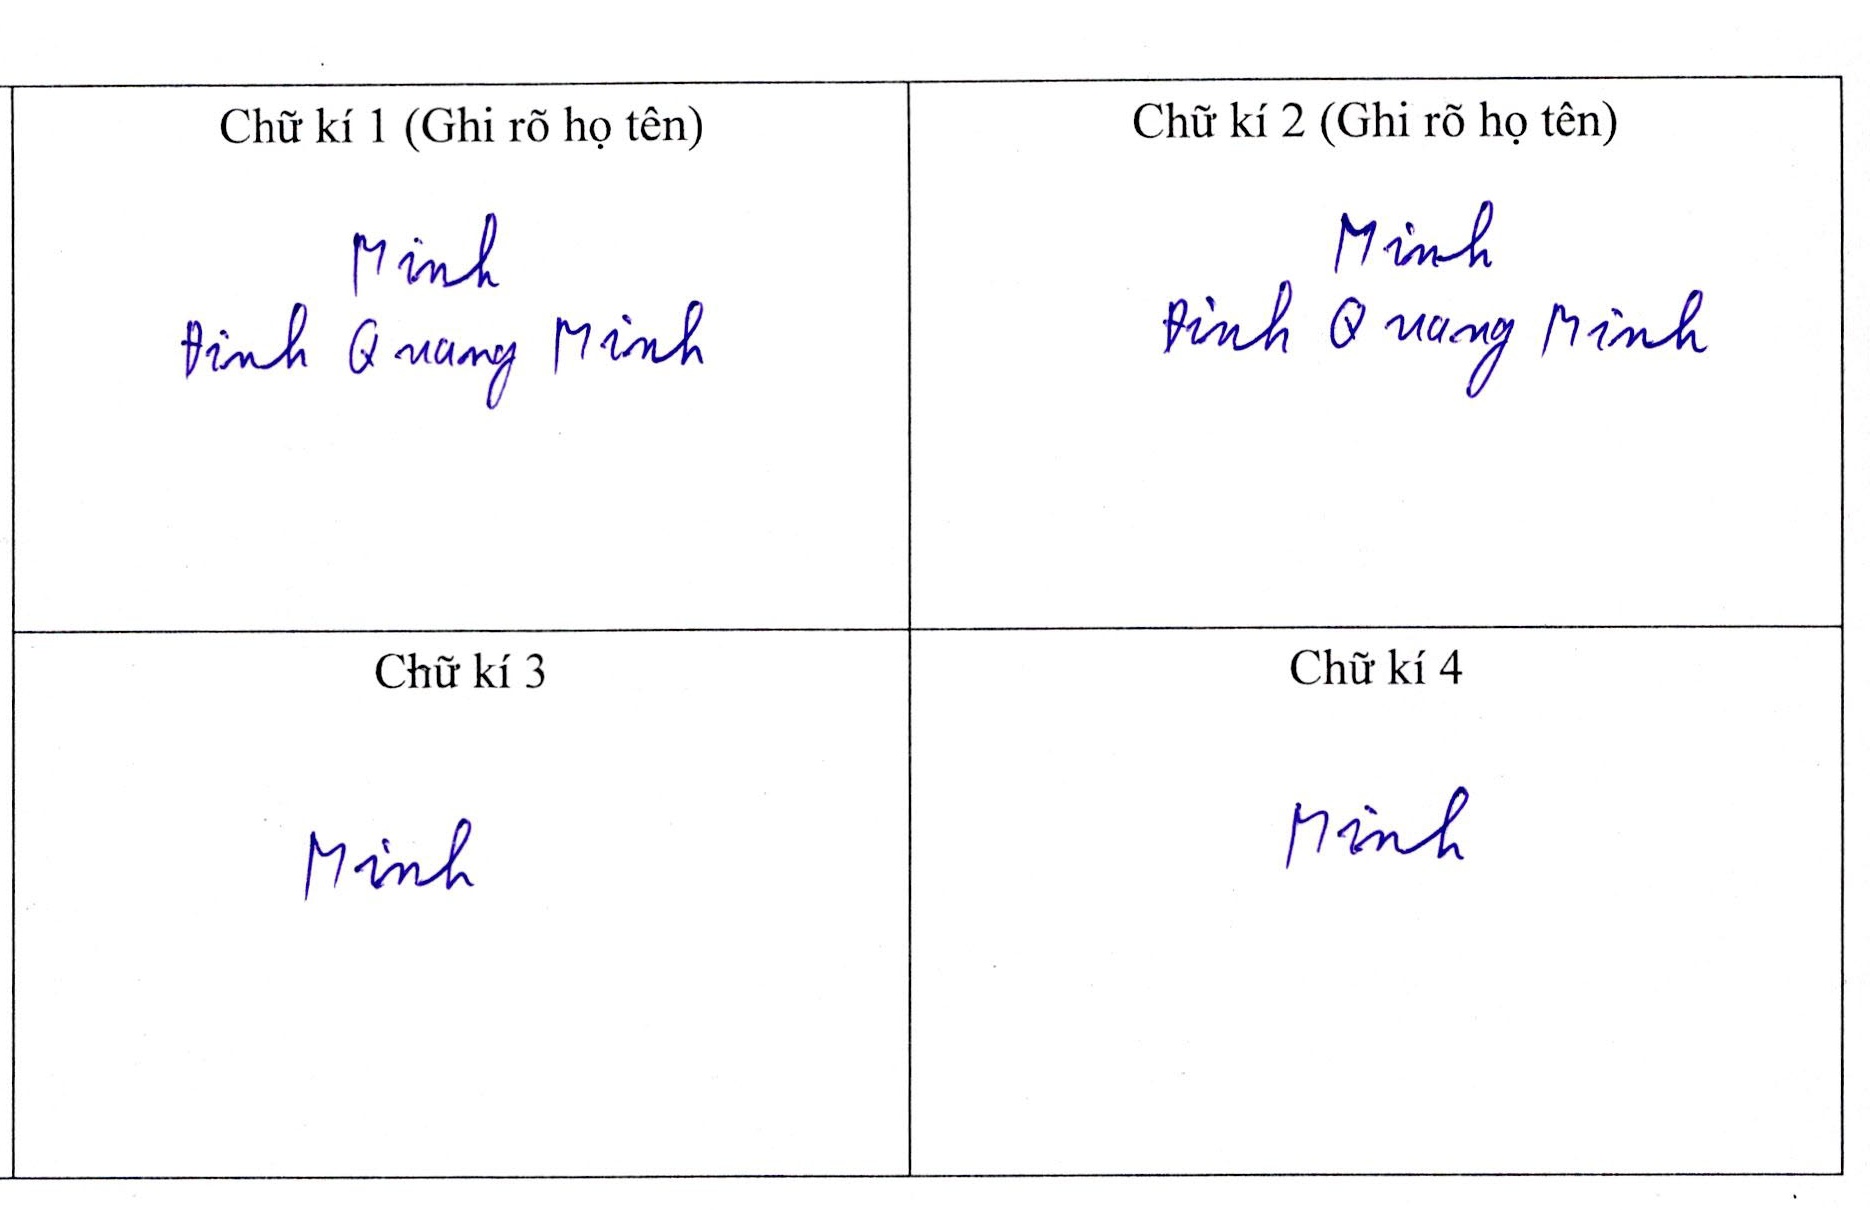 Chữ kí 1 (Ghi rõ họ tên)
Minh
Đinh Quang Minh
Chữ kí 2 (Ghi rõ họ tên)
Minh
Đinh Quang Minh
Chữ kí 3
Minh
Chữ kí 4
Minh